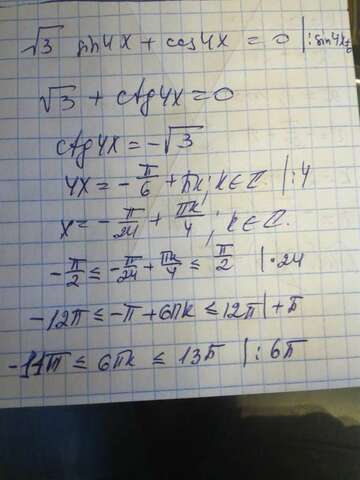 √3 sin4x + cos4x = 0 | : sin4x≠0
√3 + ctg4x = 0
ctg4x = -√3
4x = -π/6 + πk; k∈Z. | : 4
x = -π/24 + πk/4; k∈Z.
-π/2 ≤ -π/24 + πk/4 ≤ π/2 | · 24
-12π ≤ -π + 6πk ≤ 12π | + π
-11π ≤ 6πk ≤ 13π | : 6π